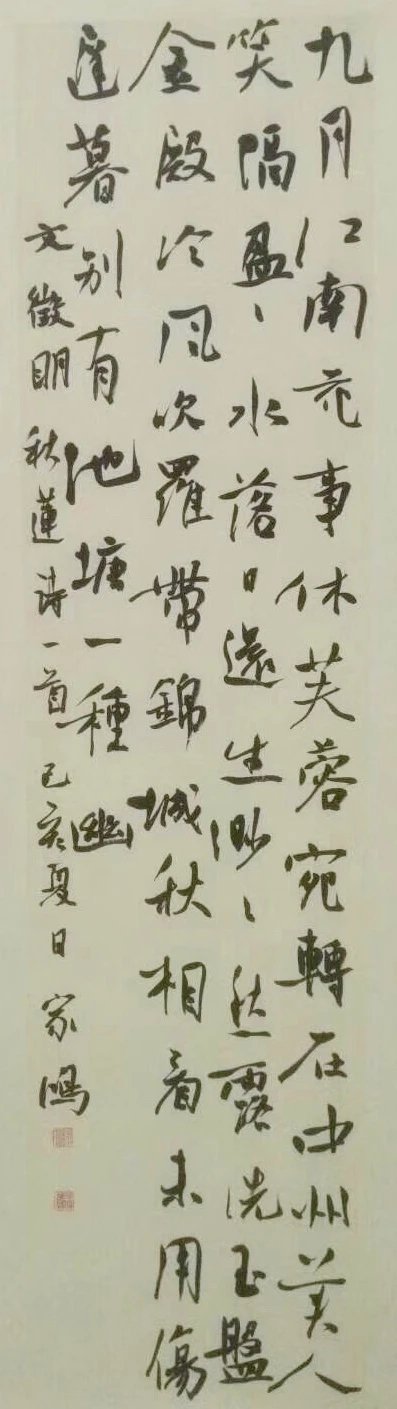 九月江南花事休芙蓉宛轉在中州美人
笑隔盈〻水落日還生渺〻愁露洗玉盤
金殿冷風吹羅帶錦城秋相看未用傷
遲暮别有池塘一種幽
文徵明秋蓮詩一首己亥夏日家鴻